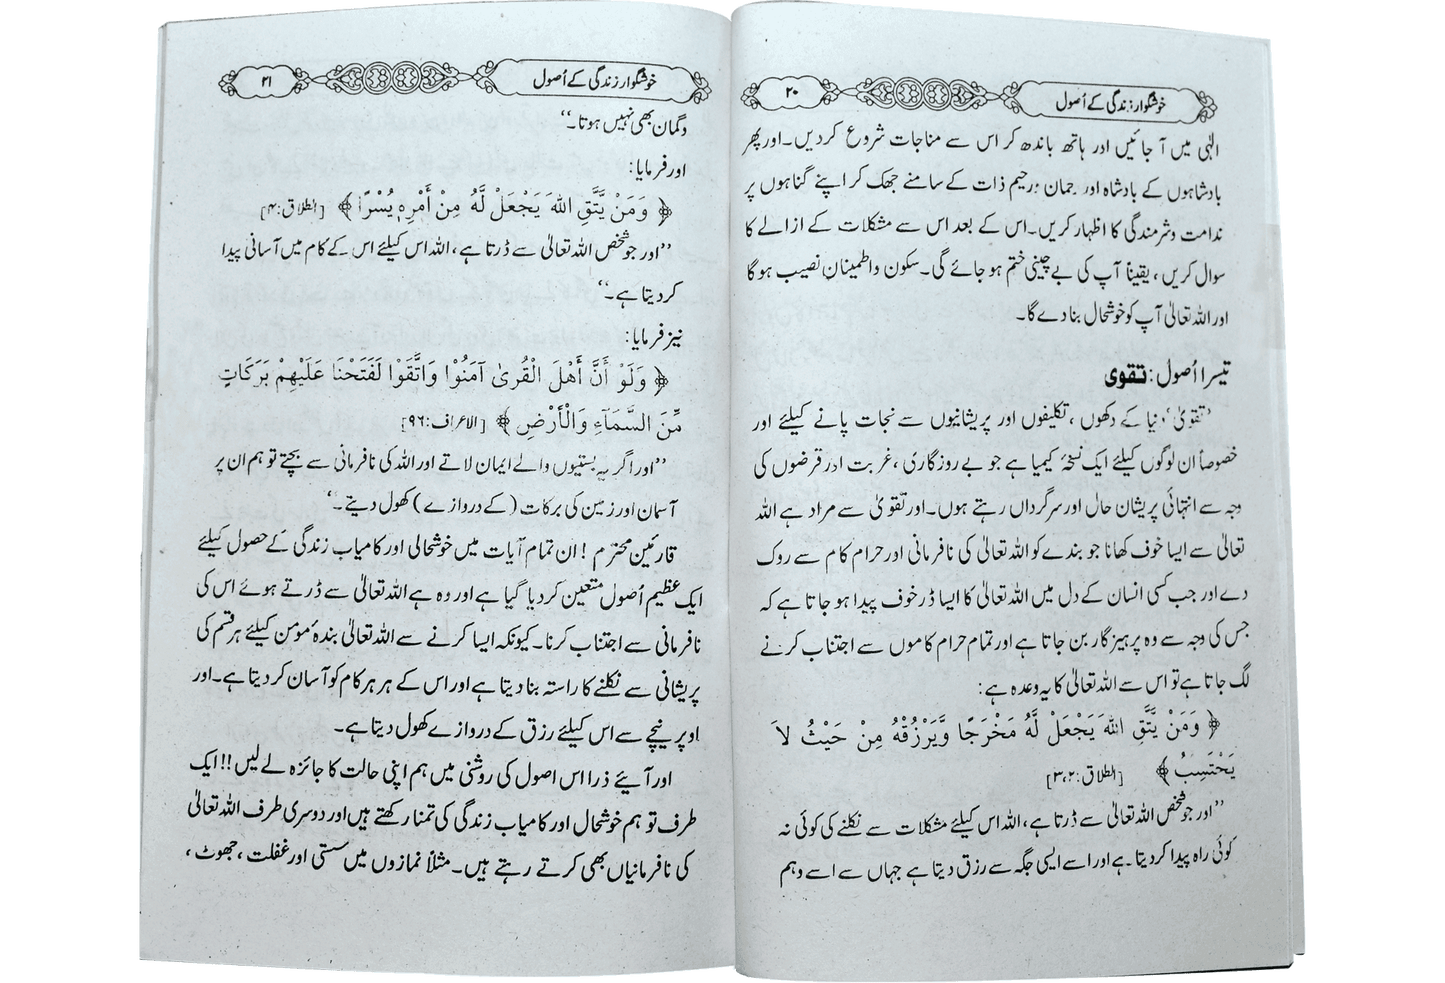 خوشگوار زندگی کے اُصول
۲۰
الٰہی میں آ جائیں اور ہاتھ باندھ کر اس سے مناجات شروع کردیں۔اور پھر
بادشاہوں کے بادشاہ اور رحمان ورحیم ذات کے سامنے جھک کر اپنے گناہوں پر
ندامت وشرمندگی کا اظہار کریں۔اس کے بعد اس سے مشکلات کے ازالے کا
سوال کریں، یقیناً آپ کی بے چینی ختم ہو جائے گی۔سکون واطمینان نصیب ہوگا
اور اللہ تعالیٰ آپ کو خوشحال بنا دے گا۔
تیسرا اُصول: تقویٰ
’تقویٰ‘ دنیا کے دکھوں، تکلیفوں اور پریشانیوں سے نجات پانے کیلئے اور
خصوصاً ان لوگوں کیلئے ایک نسخۂ کیمیا ہے جو بے روزگاری، غربت اور قرضوں کی
وجہ سے انتہائی پریشان حال اور سرگرداں رہتے ہوں۔اور تقویٰ سے مراد ہے اللہ
تعالیٰ سے ایسا خوف کھانا جو بندے کو اللہ تعالیٰ کی نافرمانی اور حرام کام سے روک
دے اور جب کسی انسان کے دل میں اللہ تعالیٰ کا ایسا ڈر خوف پیدا ہو جاتا ہے کہ
جس کی وجہ سے وہ پرہیزگار بن جاتا ہے اور تمام حرام کاموں سے اجتناب کرنے
لگ جاتا ہے تو اس سے اللہ تعالیٰ کا یہ وعدہ ہے:
﴿ وَمَنْ يَّتَّقِ اللهَ يَجْعَلْ لَّهُ مَخْرَجًا وَّيَرْزُقْهُ مِنْ حَيْثُ لاَ
يَحْتَسِبُ ﴾ [الطلاق:۲،۳]
’’اور جو شخص اللہ تعالیٰ سے ڈرتا ہے، اللہ اس کیلئے مشکلات سے نکلنے کی کوئی نہ
کوئی راہ پیدا کر دیتا ہے اور اسے ایسی جگہ سے رزق دیتا ہے جہاں سے اسے وہم
خوشگوار زندگی کے اُصول
۲۱
وگمان بھی نہیں ہوتا۔‘‘
اور فرمایا:
﴿ وَمَنْ يَّتَّقِ اللهَ يَجْعَلْ لَّهُ مِنْ أَمْرِهِ يُسْرًا ﴾ [الطلاق:۴]
’’اور جو شخص اللہ تعالیٰ سے ڈرتا ہے، اللہ اس کیلئے اس کے کام میں آسانی پیدا
کر دیتا ہے۔‘‘
نیز فرمایا:
﴿ وَلَوْ أَنَّ أَهْلَ الْقُرىٰ آمَنُوْا وَاتَّقَوْا لَفَتَحْنَا عَلَيْهِمْ بَرَكَاتٍ
مِّنَ السَّمَآءِ وَالْأَرْضِ ﴾ [الاعراف:۹۶]
’’اور اگر یہ بستیوں والے ایمان لاتے اور اللہ کی نافرمانی سے بچتے تو ہم ان پر
آسمان اور زمین کی برکات (کے دروازے) کھول دیتے۔‘‘
قارئین محترم! ان تمام آیات میں خوشحالی اور کامیاب زندگی کے حصول کیلئے
ایک عظیم اُصول متعین کر دیا گیا ہے اور وہ ہے اللہ تعالیٰ سے ڈرتے ہوئے اس کی
نافرمانی سے اجتناب کرنا۔کیونکہ ایسا کرنے سے اللہ تعالیٰ بندۂ مومن کیلئے ہر قسم کی
پریشانی سے نکلنے کا راستہ بنا دیتا ہے اور اس کے ہر ہر کام کو آسان کر دیتا ہے۔اور
اوپر نیچے سے اس کیلئے رزق کے دروازے کھول دیتا ہے۔
اور آیئے ذرا اس اصول کی روشنی میں ہم اپنی حالت کا جائزہ لے لیں!! ایک
طرف تو ہم خوشحال اور کامیاب زندگی کی تمنا رکھتے ہیں اور دوسری طرف اللہ تعالیٰ
کی نافرمانیاں بھی کرتے رہتے ہیں۔مثلاً نمازوں میں سستی اور غفلت، جھوٹ،